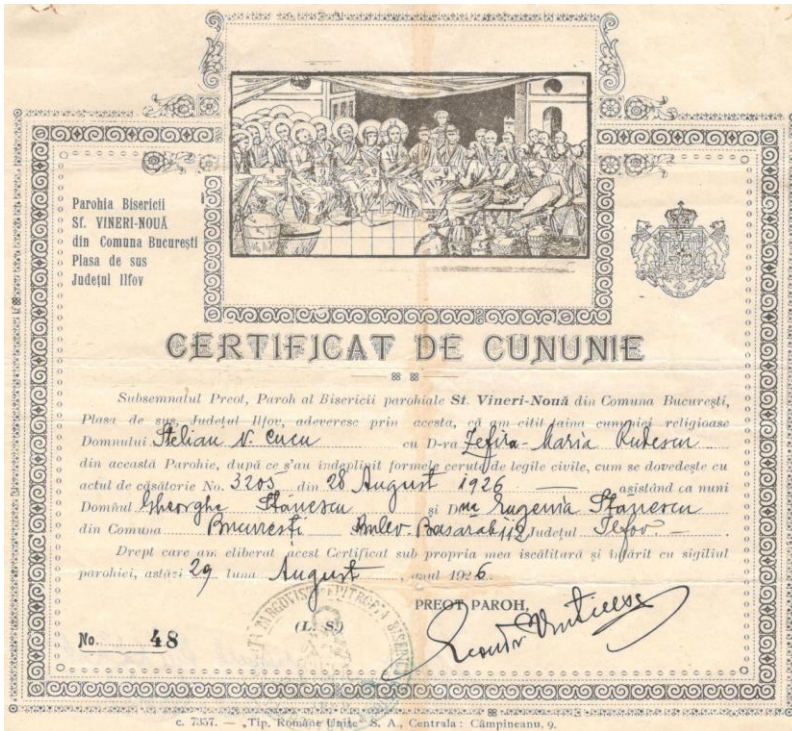 Parohia Bisericii
Sf. VINERI-NOUĂ
din Comuna București
Plasa de sus
Județul Ilfov
CERTIFICAT DE CUNUNIE
Subsemnatul Preot, Paroh al Bisericii parohiale Sf. Vineri-Nouă din Comuna București,
Plasa de sus, Județul Ilfov, adeveresc prin acesta, că am citit taina cununiei religioase
Domnului Stelian N. Cucu cu D-ra Zefira-Maria Rubescu
din această Parohie, după ce s'au îndeplinit formele cerute de legile civile, cum se dovedește cu
actul de căsătorie No. 3205 din 28 August 1926 — asistând ca nuni
Domnul Gheorghe Stănescu și Dna Eugenia Stănescu
din Comuna București Bulev. Basarab 112 Județul Ilfov. —
Drept care am eliberat acest Certificat sub propria mea iscălitură și întărit cu sigiliul
parohiei, astăzi 29 luna August, anul 1926.
PREOT PAROH,
(L. S.)
No. 48
c. 7357. — „Tip. Române Unite" S. A., Centrala: Câmpineanu, 9.